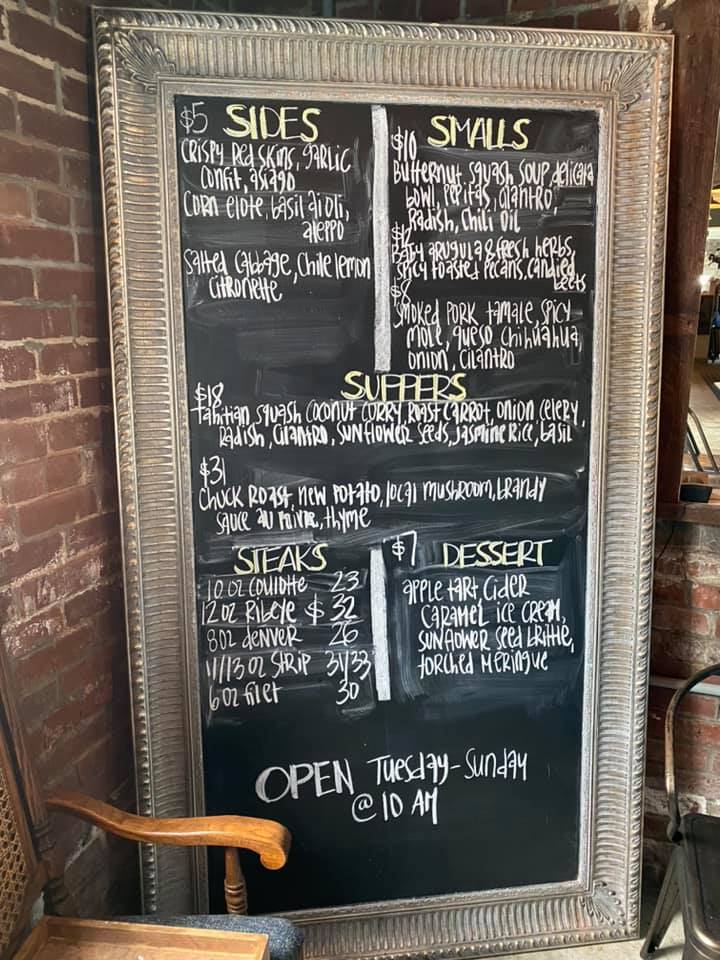 $5 SIDES
CRISPY Red SKINS, GARLIC
CONFIT, ASIAGO
CORN elote, basil aioli,
aleppo
Salted Cabbage, Chile lemon
Citronette
SMALLS
$10
Butternut squash soup, delicata
bowl, pepitas, cilantro,
Radish, Chili Oil
Baby arugula & fresh herbs,
spicy toasted pecans, candied
beets
$8
Smoked Pork tamale spicy
mole, queso chihuahua,
onion, cilantro
SUPPERS
$18
Tahitian squash coconut curry, roast carrot, onion celery,
Radish, cilantro, sunflower seeds, jasmine rice, basil
$31
Chuck Roast, new potato, local mushroom, brandy
sauce au poivre, thyme
STEAKS
10 oz coulotte 23
12 oz Ribeye $ 32
8 oz denver 26
11/13 oz Strip 31/33
6 oz filet 30
$7 DESSERT
apple tart, Cider
Caramel ice cream,
sunflower seed brittle,
torched meringue
OPEN Tuesday-Sunday
@ 10 AM